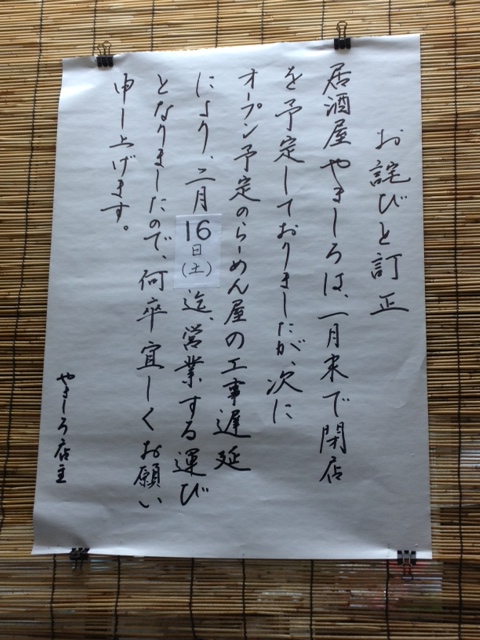 お詫びと訂正
居酒屋やましろは、一月末で閉店
を予定しておりましたが、次に
オープン予定のらーめん屋の工事遅延
により、二月16日(土)迄、営業する運び
となりましたので、何卒宜しくお願い
申し上げます。
やましろ店主